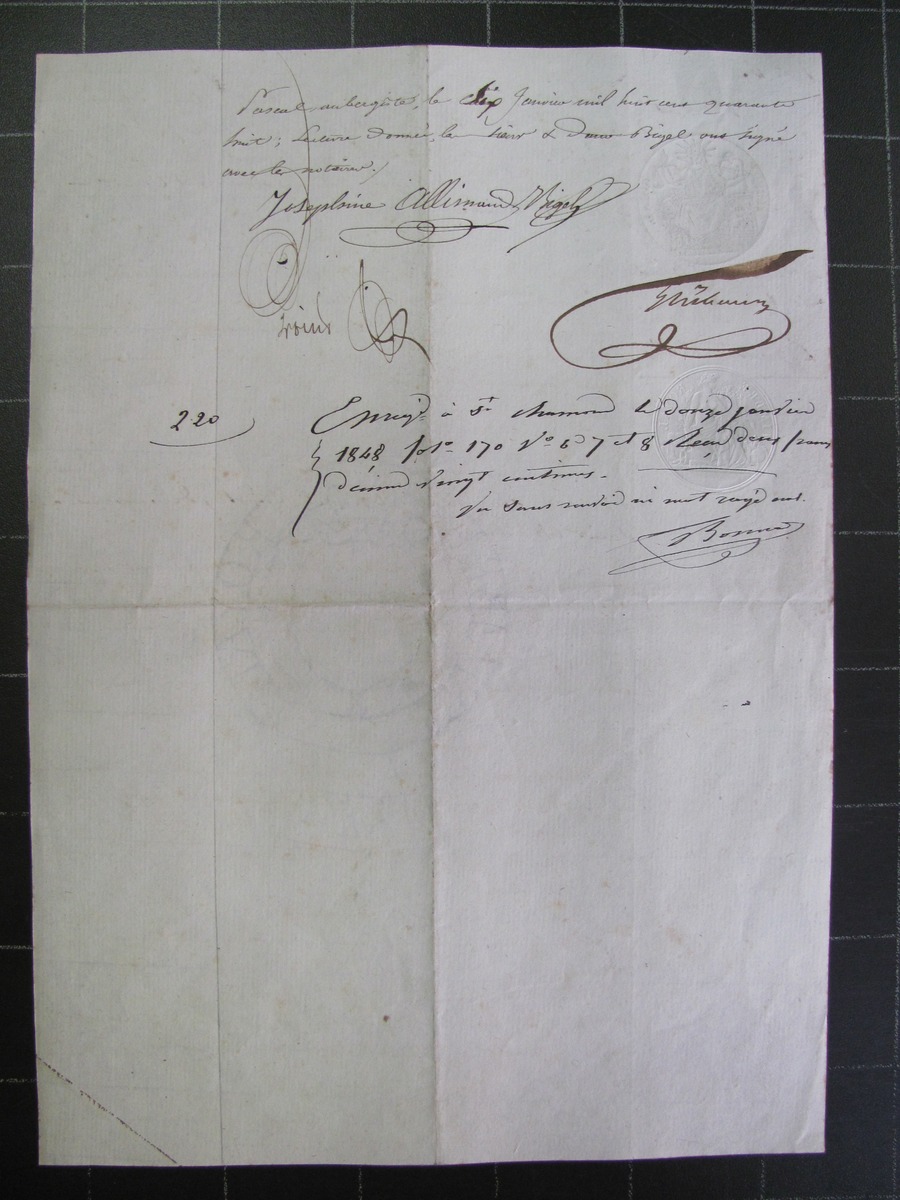 Pascal aubergiste, le dix Janvier mil huit cent quarante
huit; Lecture donnée, le sieur & dame Bigel ont signé
avec les notaires./
Josephine Allimand Bigel
220
Enregt. à St. chamond le douze janvier
1848 fol. 170 Vo. 6 7 et 8 Reçu deux francs
décime vingt centimes.
Vu Sans renvoi ni mot rayé